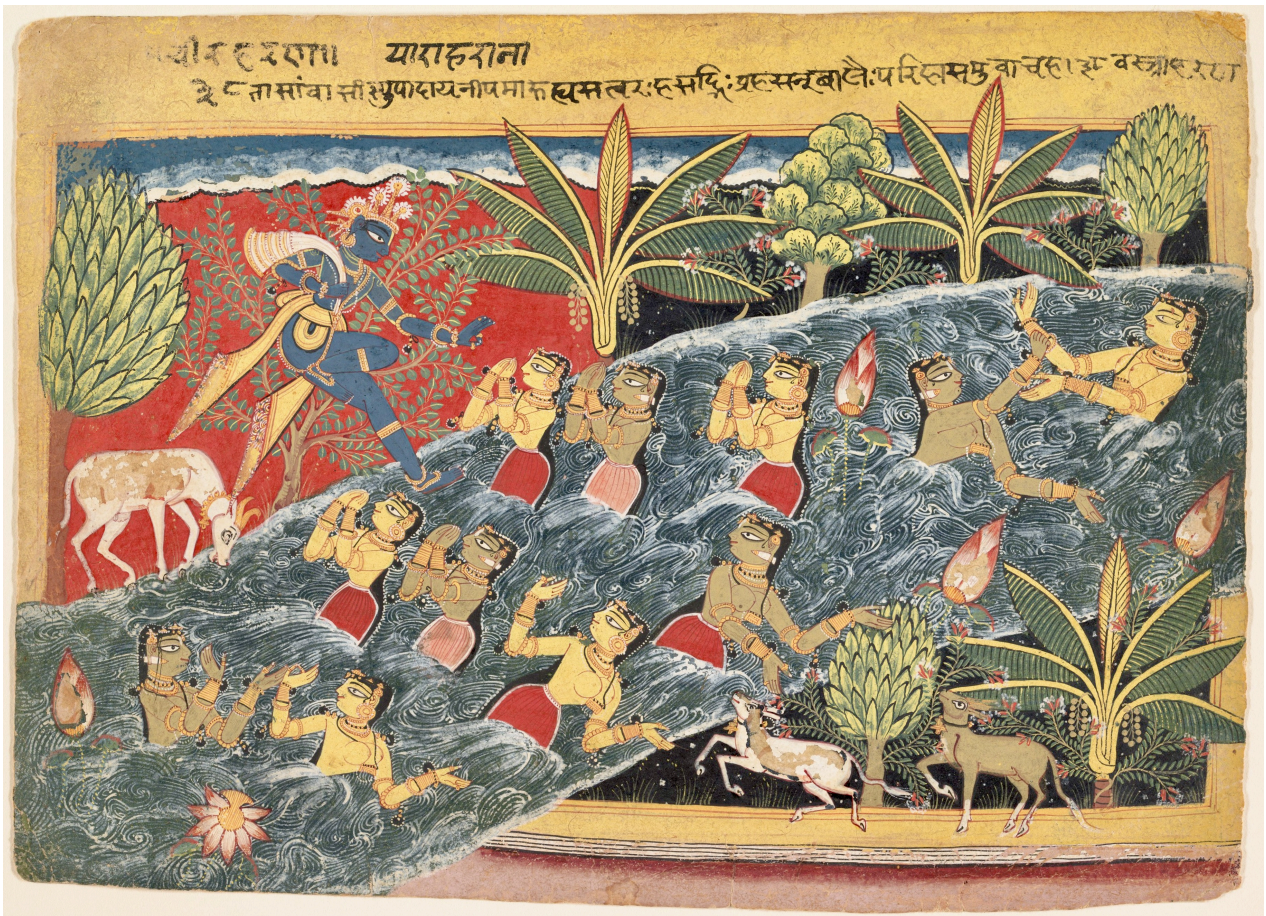 चीरहरण॥ याराहराना
३८ तासांवासांस्युपादायनीपमारुह्यसत्वरः हसद्भिः प्रहसन्बालैः परिहासमुवाचह।